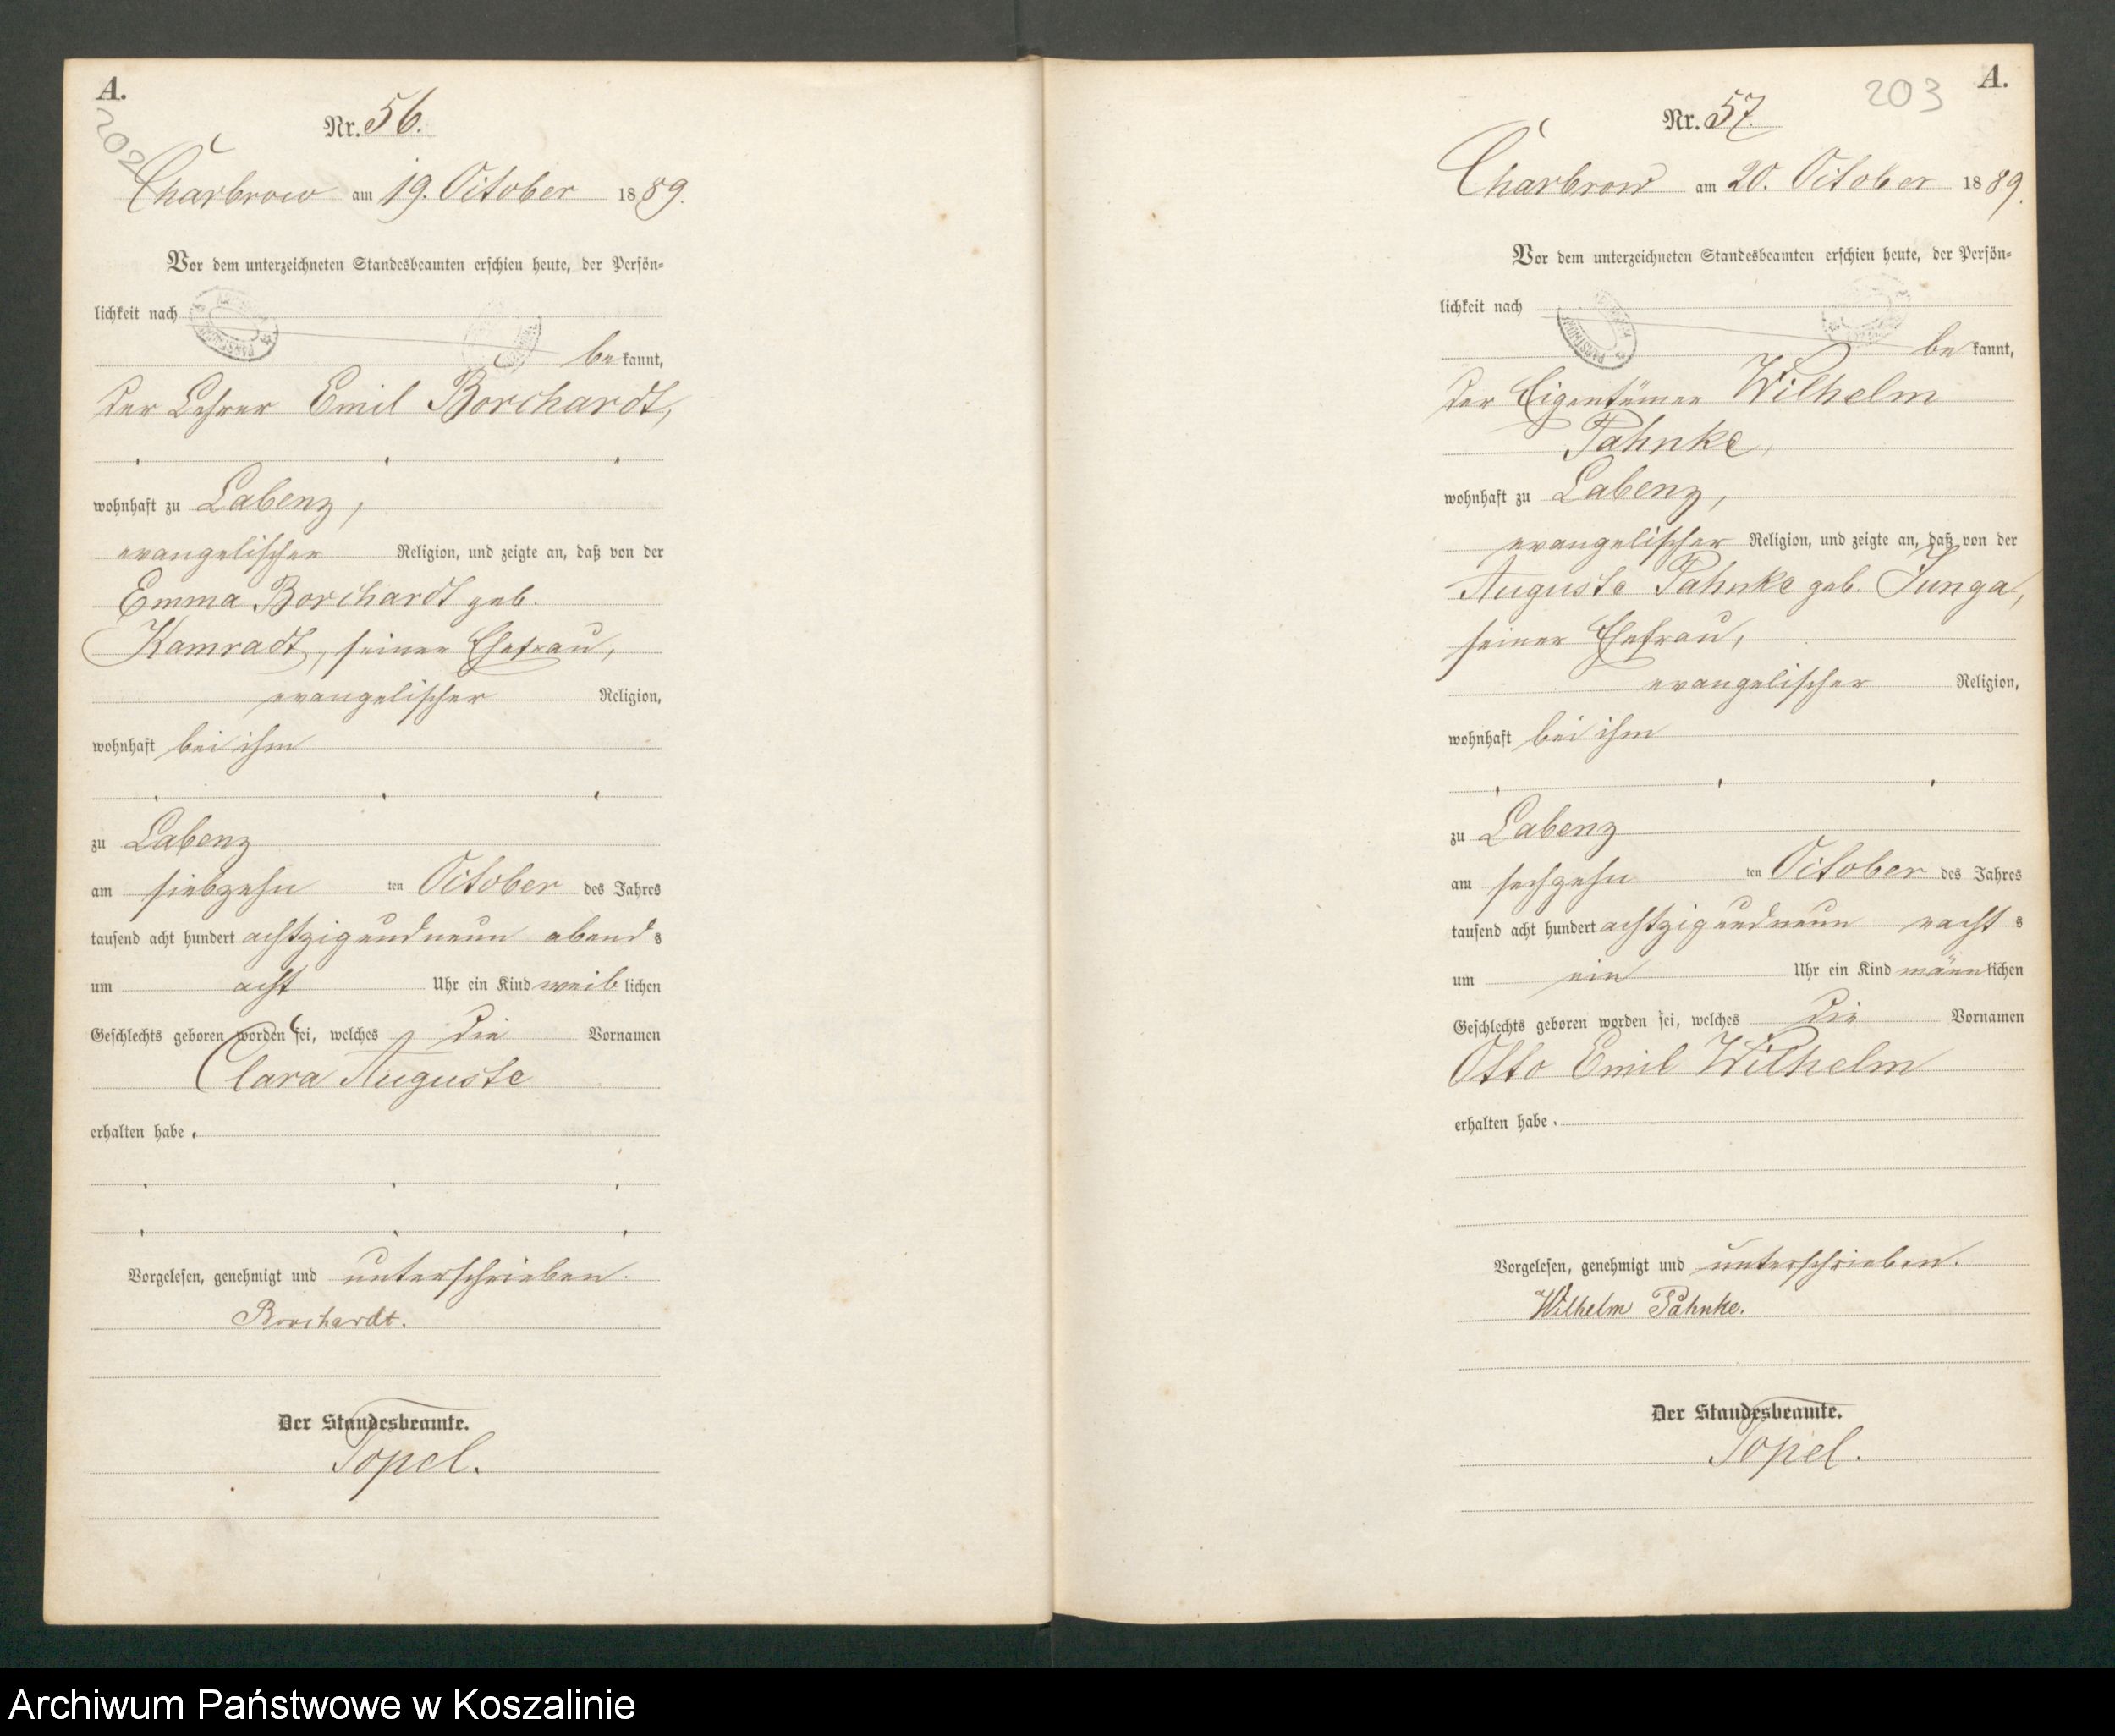 A.
202
Nr. 56.
Charbrow am 19. October 1889.
Vor dem unterzeichneten Standesbeamten erschien heute, der Persön-
lichkeit nach
bekannt,
der Lehrer Emil Borchardt,
wohnhaft zu Labenz,
evangelischer Religion, und zeigte an, daß von der
Emma Borchardt geb.
Kamradt, seiner Ehefrau,
evangelischer Religion,
wohnhaft bei ihm
zu Labenz
am siebzehn ten October des Jahres
tausend acht hundert achtzig und neun abends
um acht Uhr ein Kind weiblichen
Geschlechts geboren worden sei, welches die Vornamen
Clara Auguste
erhalten habe.
Vorgelesen, genehmigt und unterschrieben.
Borchardt.
Der Standesbeamte.
Topel.
A.
203
Nr. 57.
Charbrow am 20. October 1889.
Vor dem unterzeichneten Standesbeamten erschien heute, der Persön-
lichkeit nach
bekannt,
der Eigentümer Wilhelm
Pahnke,
wohnhaft zu Labenz,
evangelischer Religion, und zeigte an, daß von der
Auguste Pahnke geb. Junga,
seiner Ehefrau,
evangelischer Religion,
wohnhaft bei ihm
zu Labenz
am sechzehn ten October des Jahres
tausend acht hundert achtzig und neun nachts
um ein Uhr ein Kind männlichen
Geschlechts geboren worden sei, welches die Vornamen
Otto Emil Wilhelm
erhalten habe.
Vorgelesen, genehmigt und unterschrieben.
Wilhelm Pahnke.
Der Standesbeamte.
Topel.
Archiwum Państwowe w Koszalinie